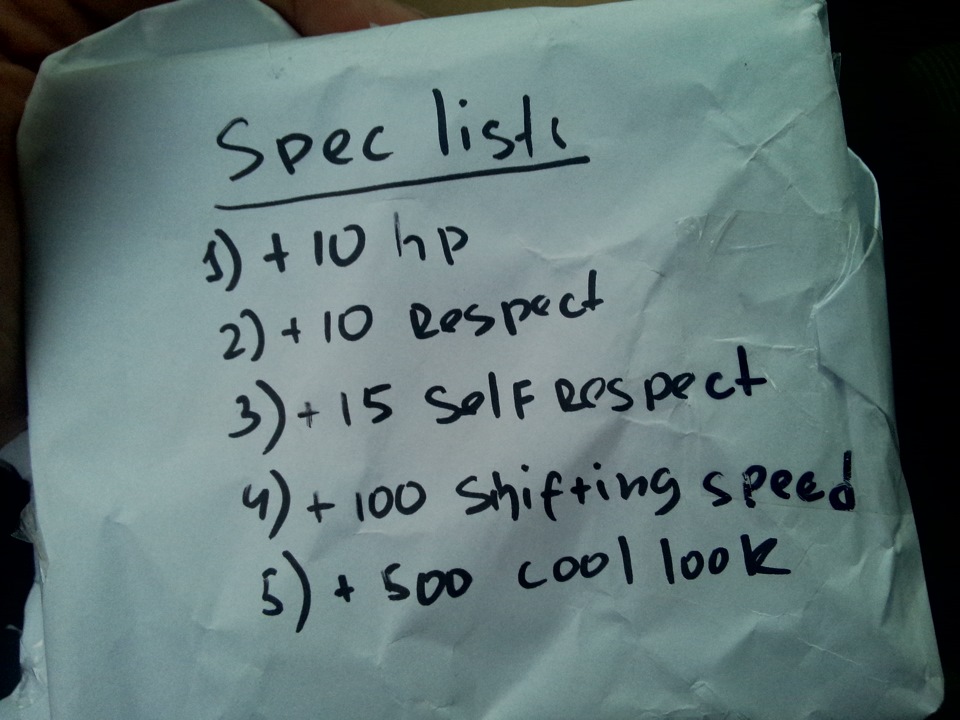 Spec list:
1) + 10 hp
2) + 10 Respect
3) + 15 Self Respect
4) + 100 Shifting speed
5) + 500 cool look